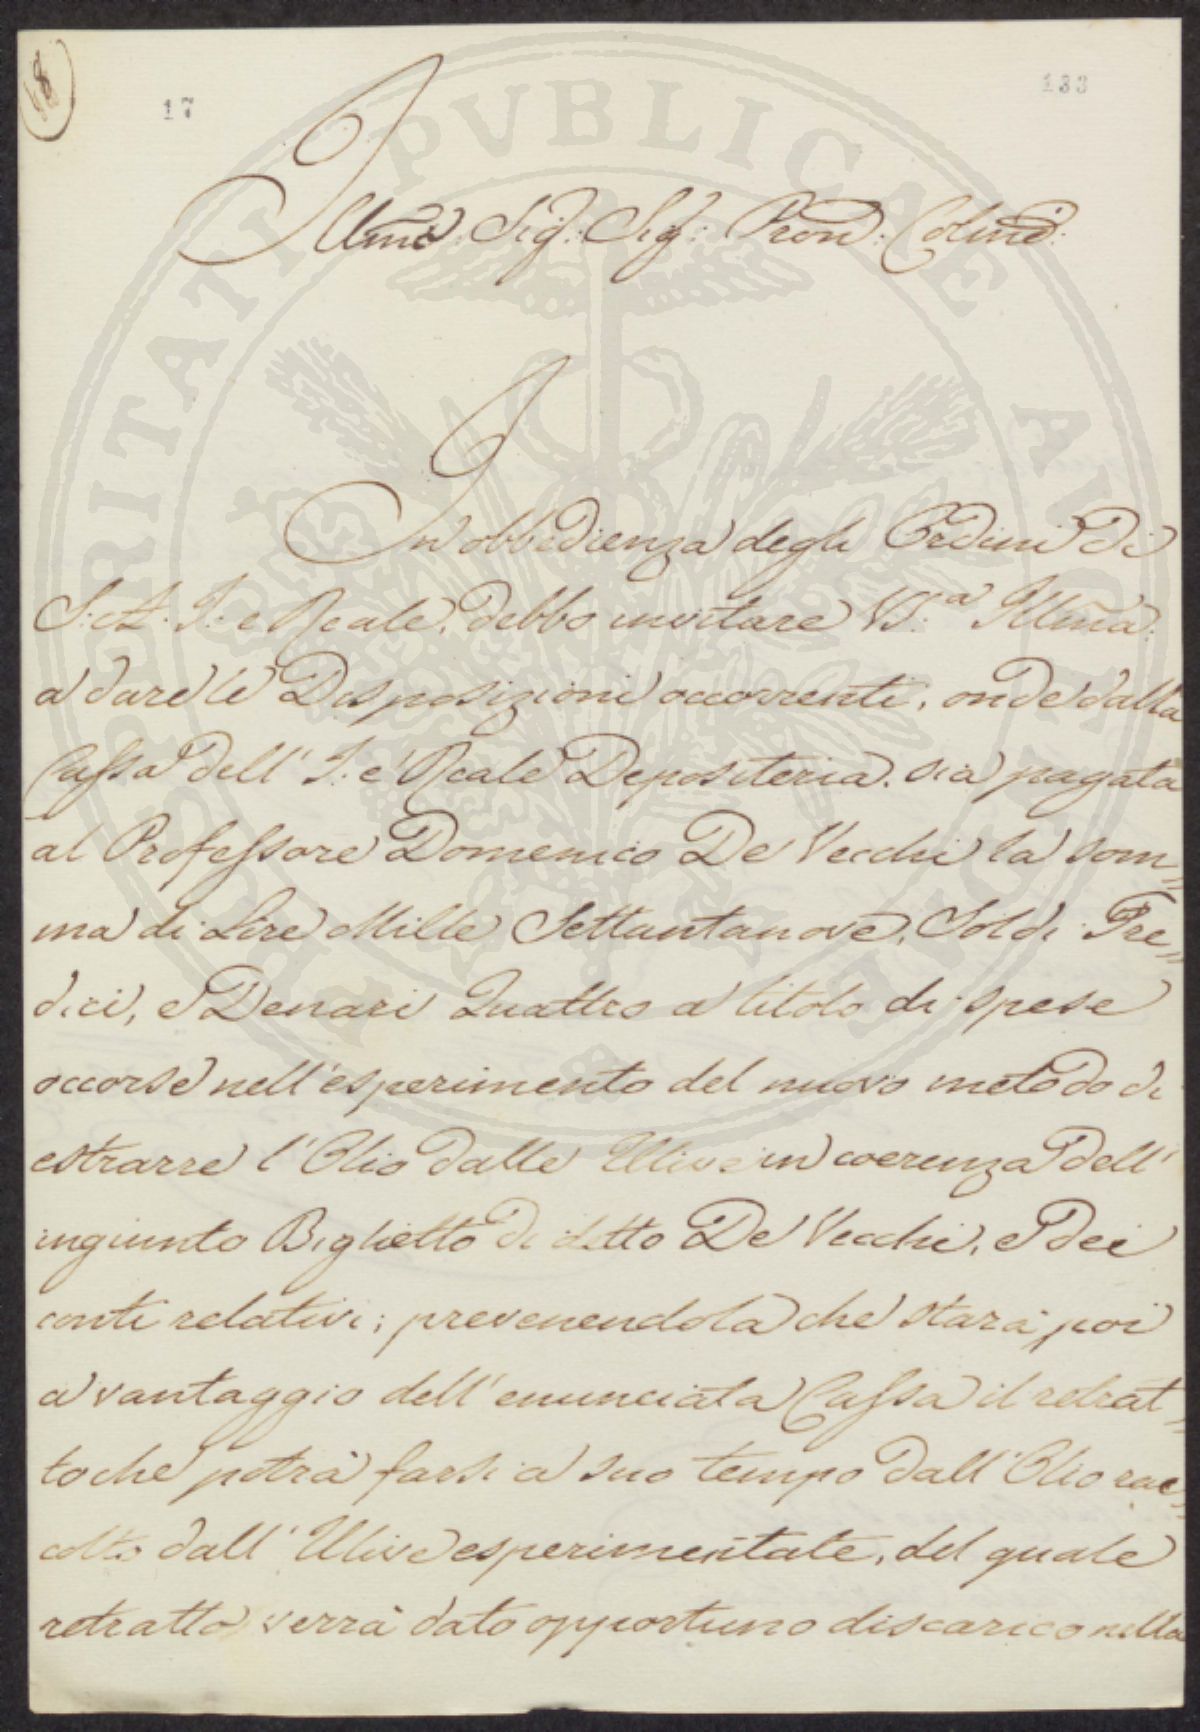 18
17
133
Illmo Sig: Sig: Pron: Colmo:
In obbedienza degli Ordini di
S: A: I: e Reale, debbo invitare VS:a Illma:
a dare le Disposizioni occorrenti, onde dalla
Cassa dell' I: e Reale Depositeria sia pagata
al Professore Domenico De Vecchi la som„
ma di Lire Mille Settantanove, Soldi Tre„
dici, e Denari Quattro a titolo di spese
occorse nell'esperimento del nuovo metodo di
estrarre l'Olio dalle Ulive in coerenza dell'
ingiunto Biglietto di detto De Vecchi, e dei
conti relativi; prevenendola che starà poi
a vantaggio dell'enunciata Cassa il retrat„
to che potrà farsi a suo tempo dall'Olio rac„
colto dall'Ulive esperimentate, del quale
retratto verrà dato opportuno discarico nella
PROSPERITATI PVBLICAE AVGENDAE